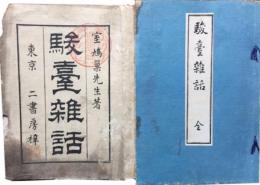 室鳩巣先生著
駿臺雜話
東京 二書房梓
駿臺雜話 全